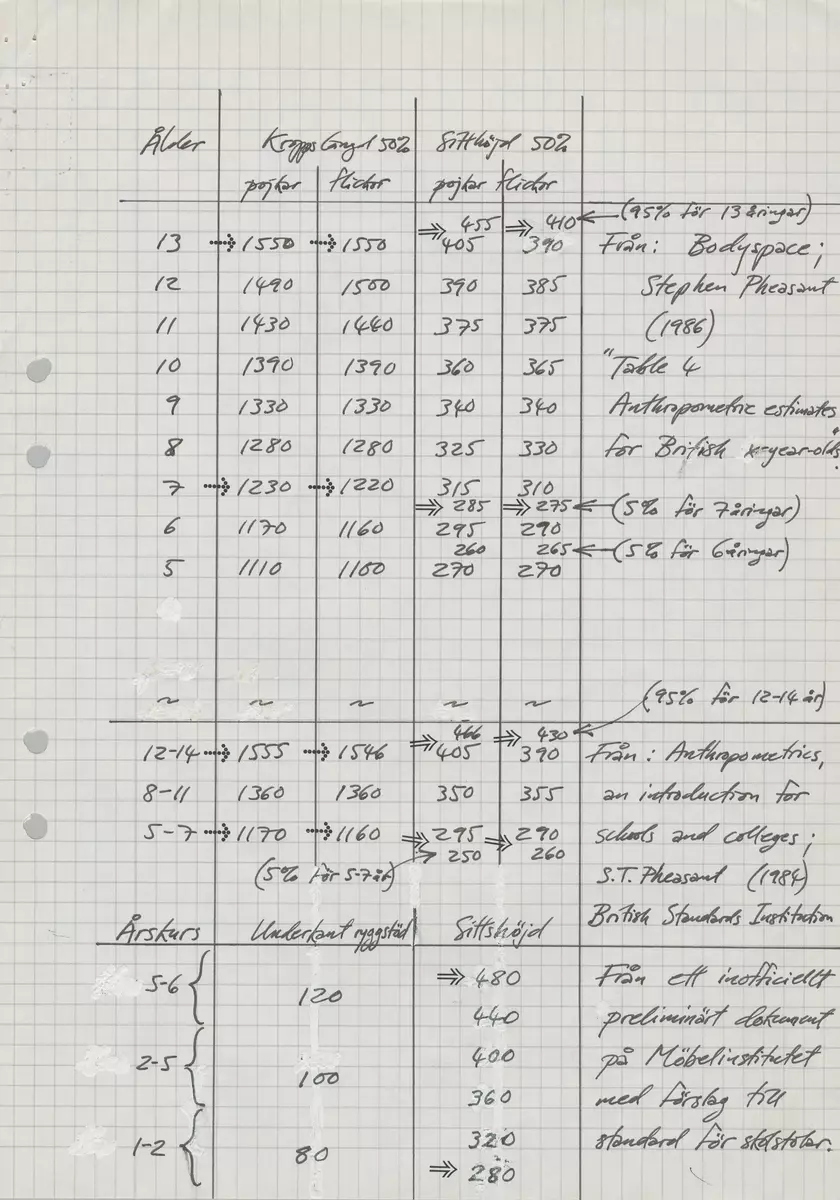 Ålder Kroppslängd 50% Sitthöjd 50%
pojkar flickor pojkar flickor
⇒ 455 ⇒ 410 ← (95% för 13 åringar)
13 → 1550 → 1550 405 390 Från: Bodyspace;
12 1490 1500 390 385 Stephen Pheasant
11 1430 1440 375 375 (1986)
10 1390 1390 360 365 "Table 4
9 1330 1330 340 340 Anthropometric estimates
8 1280 1280 325 330 for British x-year-olds"
7 → 1230 → 1220 315 310
⇒ 285 ⇒ 275 ← (5% för 7åringar)
6 1170 1160 295 290
260 265 ← (5% för 6åringar)
5 1110 1100 270 270
~ ~ ~ ~ ~ (95% för 12-14 år)
⇒ 466 ⇒ 430 ←
12-14 → 1555 → 1546 405 390 Från: Anthropometrics,
8-11 1360 1360 350 355 an introduction for
5-7 → 1170 → 1160 ⇒ 295 ⇒ 290 schools and colleges;
(5% för 5-7år) → 250 260 S.T. Pheasant (1984)
British Standards Institution
Årskurs Underkant ryggstöd Sittshöjd
5-6 { 120 ⇒ 480 Från ett inofficiellt
440 preliminärt dokument
2-5 { 100 400 på Möbelinstitutet
360 med förslag till
1-2 { 80 320 standard för skolstolar.
⇒ 280